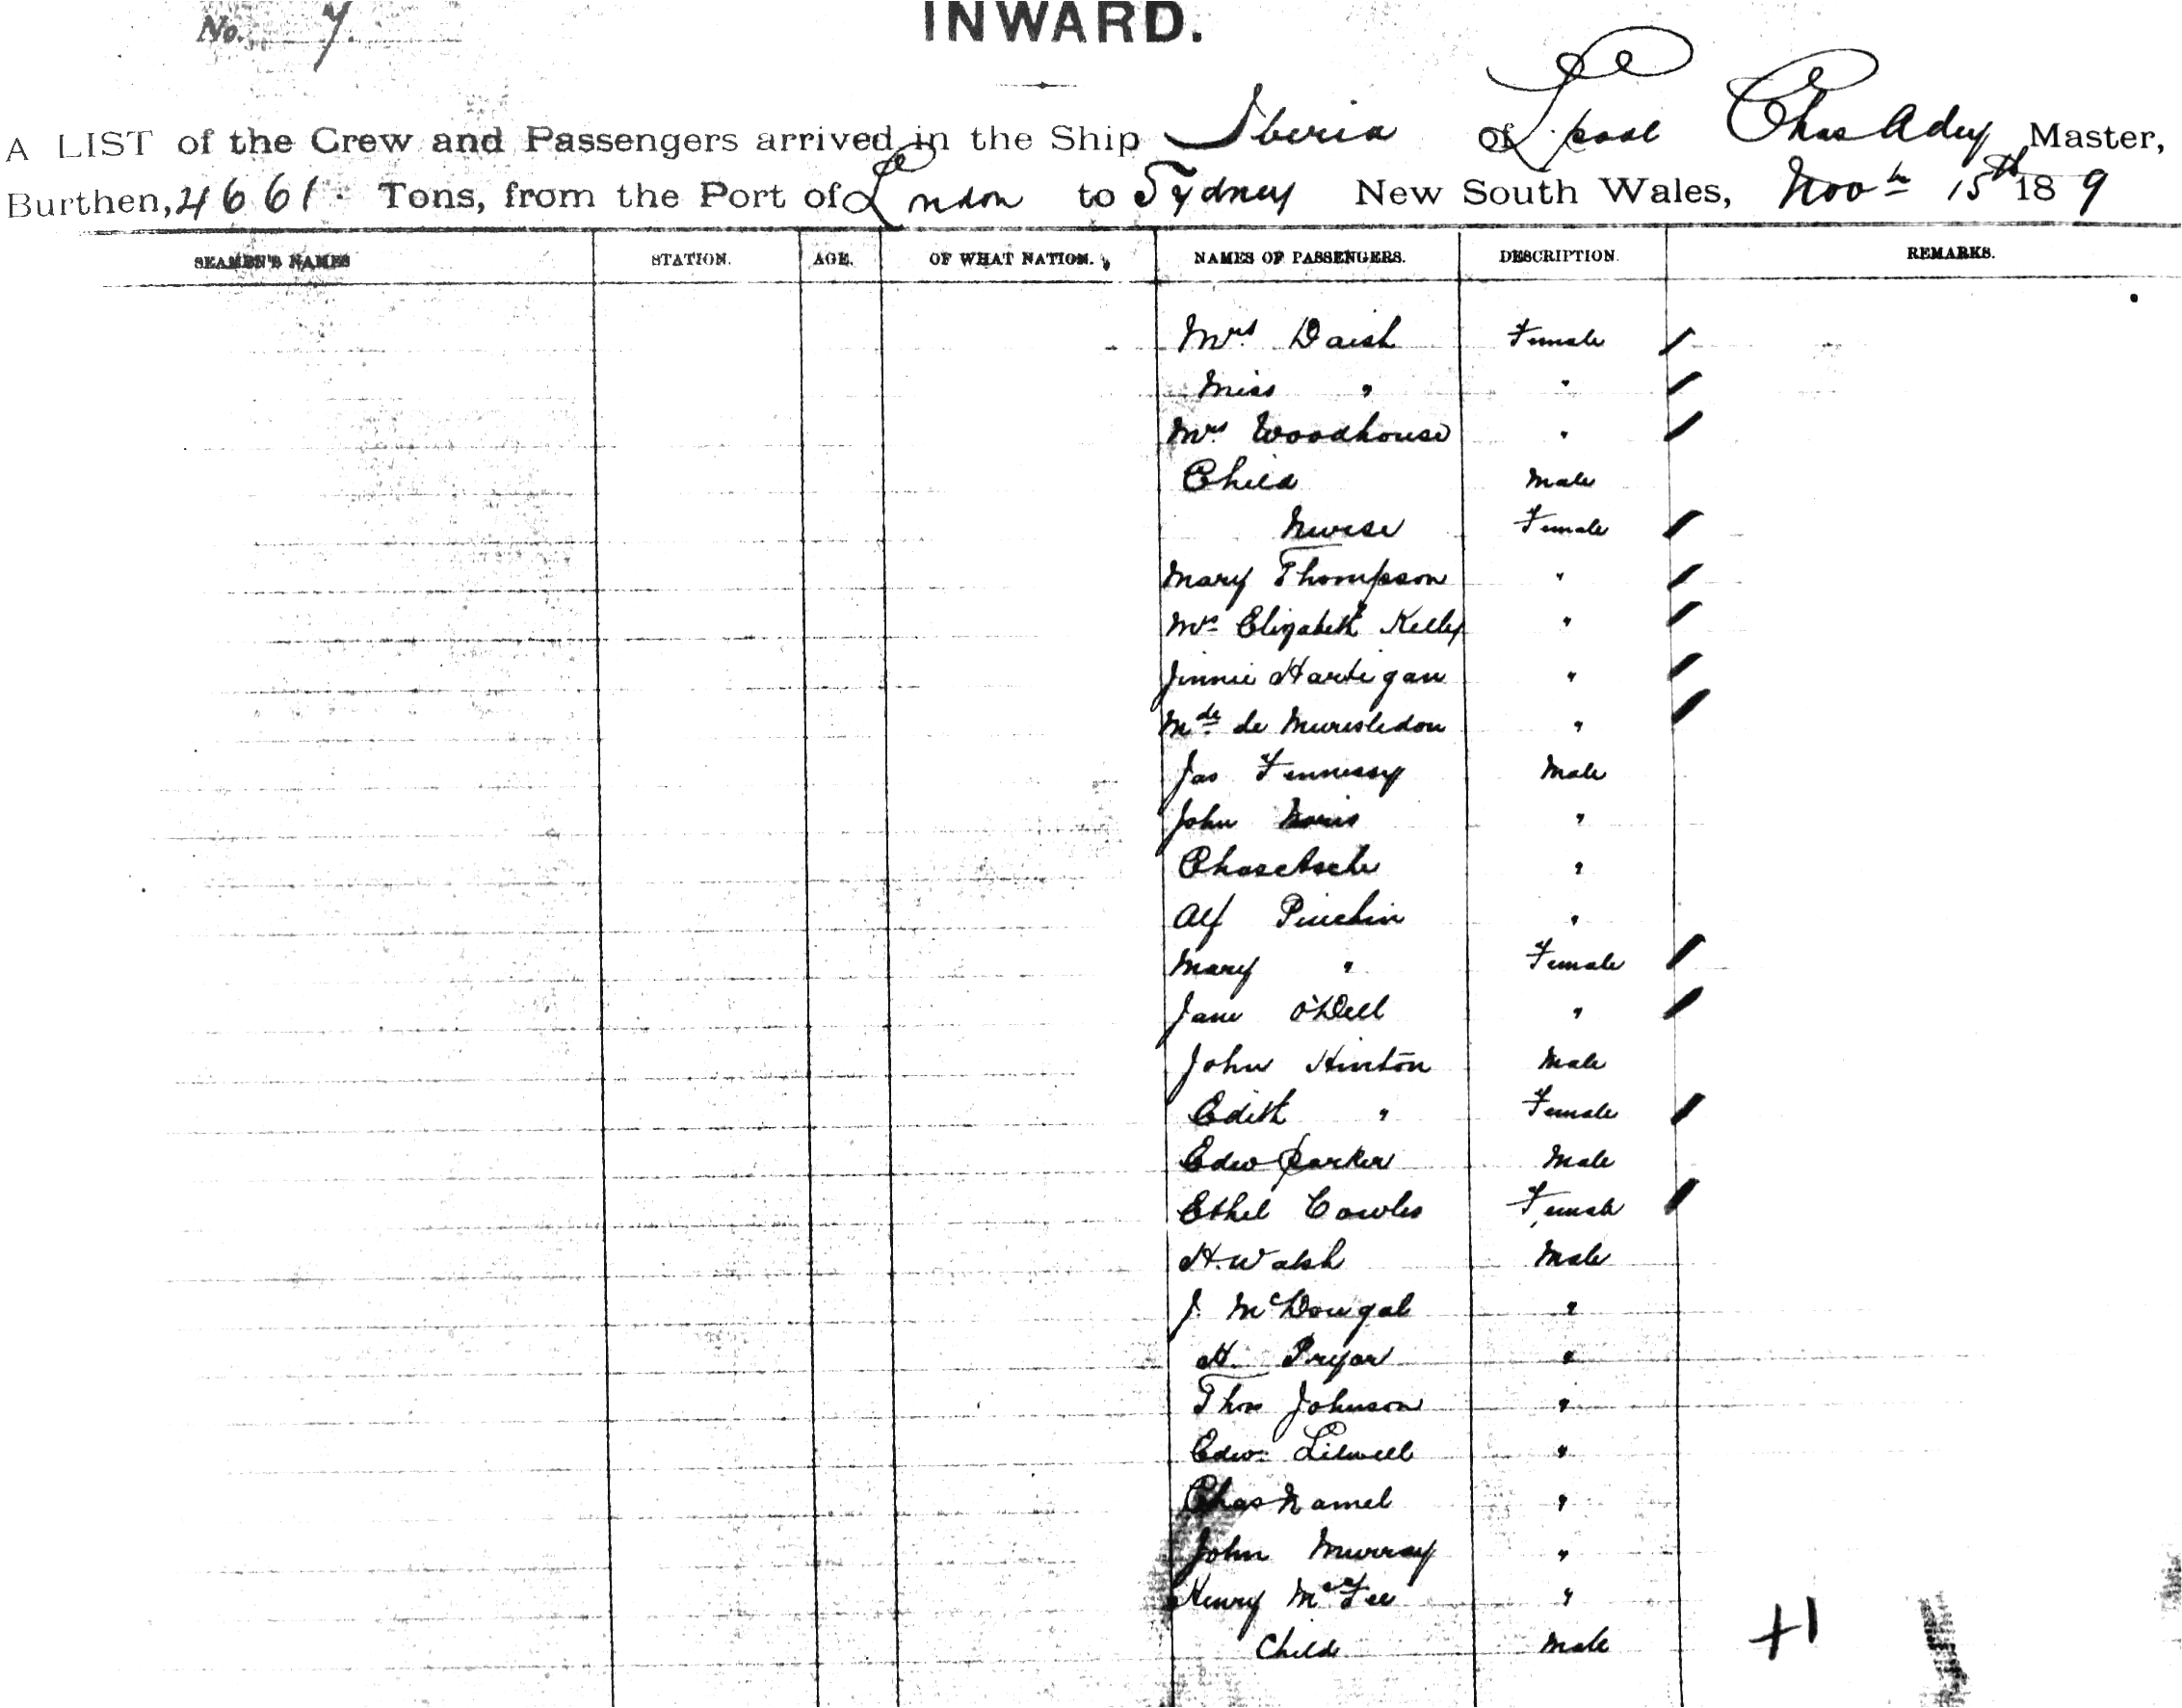 No. 7.
INWARD.
A LIST of the Crew and Passengers arrived in the Ship Iberia of L'pool Chas Adey Master,
Burthen, 4661. Tons, from the Port of London to Sydney New South Wales, Novr 15th 1889
SEAMEN'S NAMES STATION. AGE. OF WHAT NATION. NAMES OF PASSENGERS. DESCRIPTION. REMARKS.
Mrs Daish Female
Miss " "
Mrs Woodhouse "
Child Male
Nurse Female
Mary Thompson "
Mrs Elizabeth Kelly "
Jinnie Hartigan "
Mde de "
Jas Fennessy Male
John "
"
Alf Pinchin "
Mary " Female
Jane O'Dell "
John Hinton Male
Edith " Female
Edw Parker Male
Ethel Cowles Female
H. Walsh Male
J. McDougal "
H. Pryor "
Thos Johnson "
Edw. Lilwell "
Chas Hamel "
John Murray "
Henry McFee "
Child Male +1